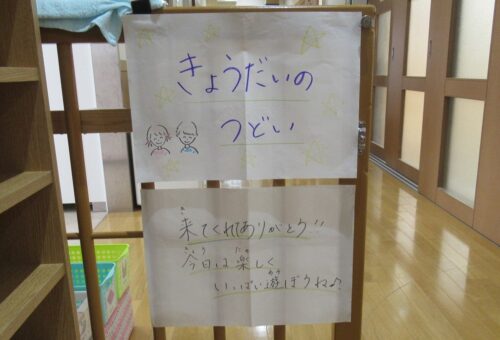 きょうだいの
つどい
来てくれてありがとう!!
今日は楽しく
いっぱい遊ぼうね♪